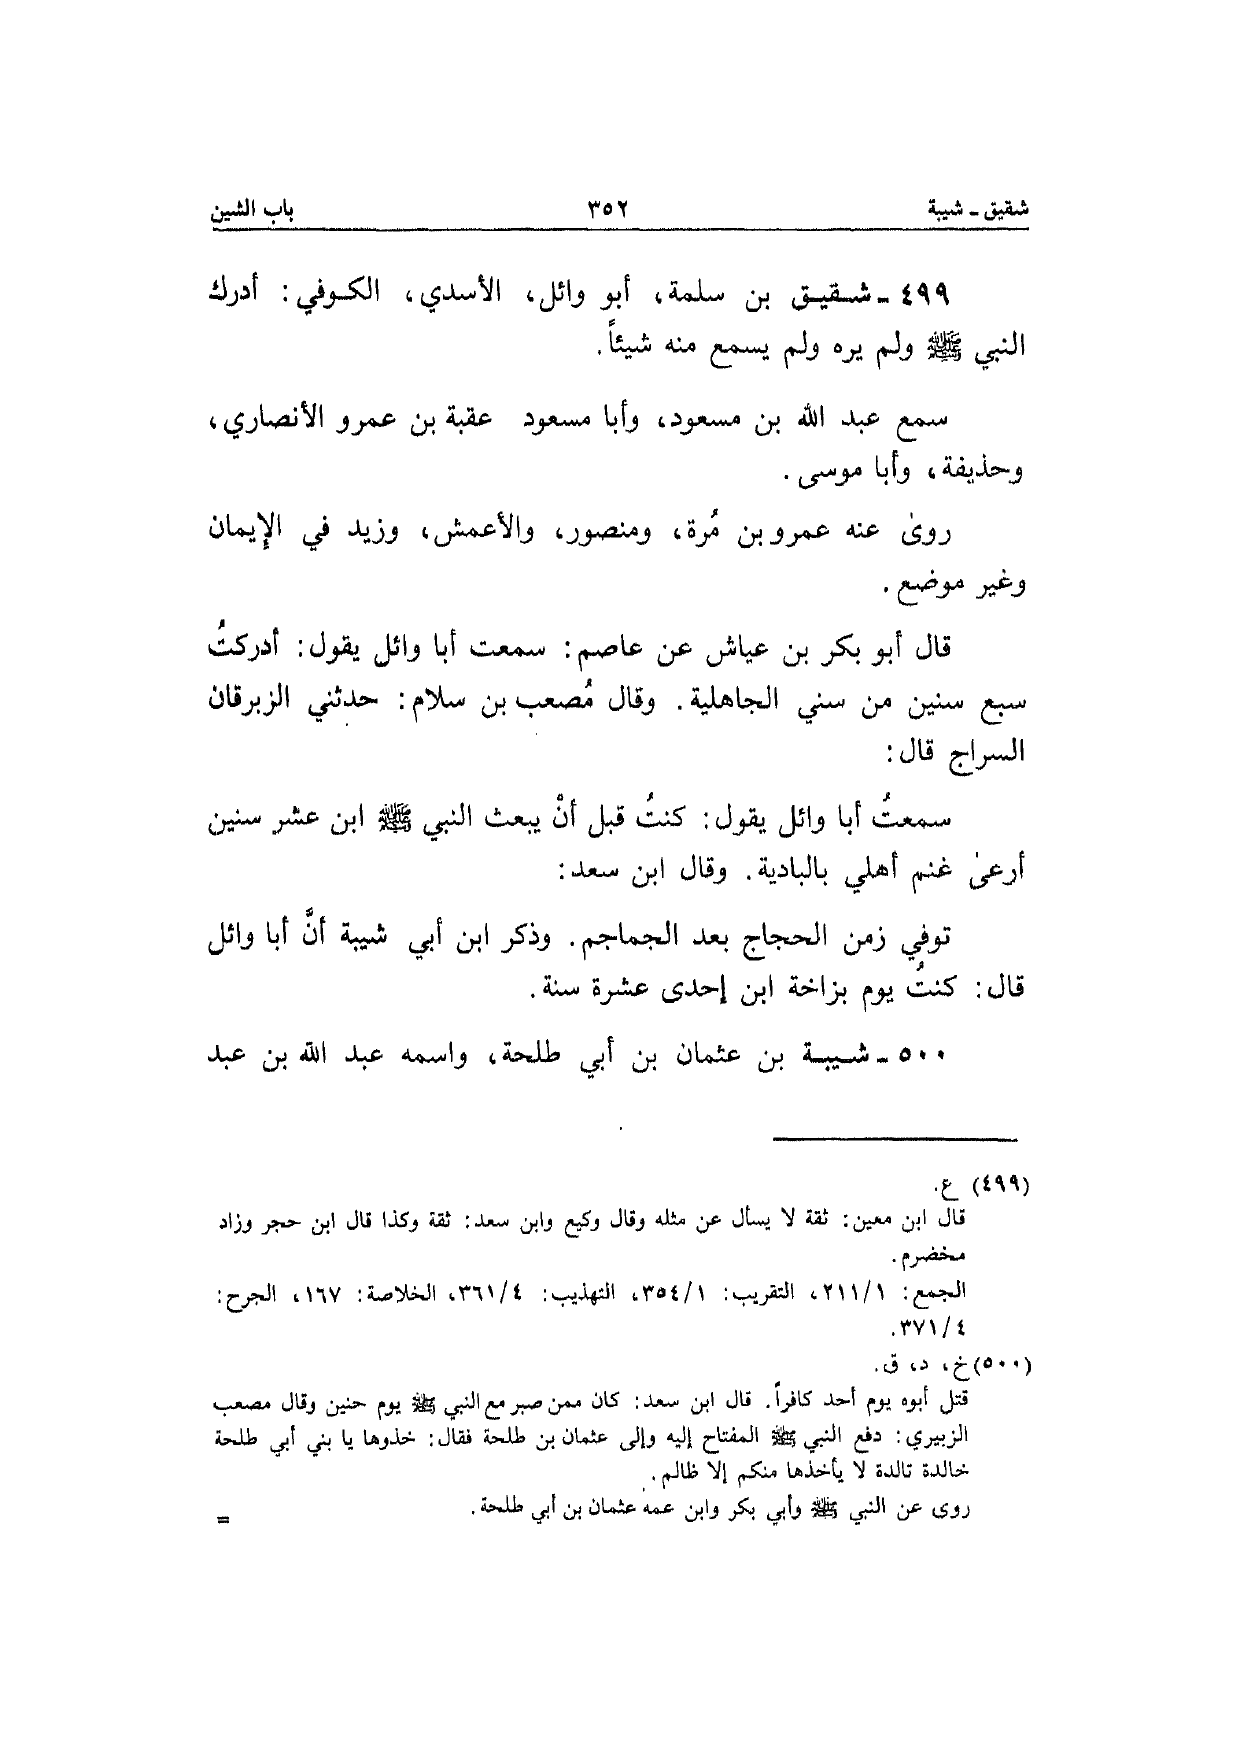 شقيق ـ شيبة ٣٥٢ باب الشين
٤٩٩ ـ شقيق بن سلمة، أبو وائل، الأسدي، الكوفي: أدرك
النبي ﷺ ولم يره ولم يسمع منه شيئاً.
سمع عبد الله بن مسعود، وأبا مسعود عقبة بن عمرو الأنصاري،
وحذيفة، وأبا موسى.
روىٰ عنه عمرو بن مُرة، ومنصور، والأعمش، وزيد في الإيمان
وغير موضع.
قال أبو بكر بن عياش عن عاصم: سمعت أبا وائل يقول: أدركتُ
سبع سنين من سني الجاهلية. وقال مُصعب بن سلام: حدثني الزبرقان
السراج قال:
سمعتُ أبا وائل يقول: كنتُ قبل أنْ يبعث النبي ﷺ ابن عشر سنين
أرعىٰ غنم أهلي بالبادية. وقال ابن سعد:
توفي زمن الحجاج بعد الجماجم. وذكر ابن أبي شيبة أنَّ أبا وائل
قال: كنتُ يوم بزاخة ابن إحدى عشرة سنة.
٥٠٠ ـ شيبة بن عثمان بن أبي طلحة، واسمه عبد الله بن عبد
(٤٩٩) ع.
قال ابن معين: ثقة لا يسأل عن مثله وقال وكيع وابن سعد: ثقة وكذا قال ابن حجر وزاد
مخضرم.
الجمع: ٢١١/١، التقريب: ٣٥٤/١، التهذيب: ٣٦١/٤، الخلاصة: ١٦٧، الجرح:
٣٧١/٤.
(٥٠٠) خ، د، ق.
قتل أبوه يوم أحد كافراً. قال ابن سعد: كان ممن صبر مع النبي ﷺ يوم حنين وقال مصعب
الزبيري: دفع النبي ﷺ المفتاح إليه وإلى عثمان بن طلحة فقال: خذوها يا بني أبي طلحة
خالدة تالدة لا يأخذها منكم إلا ظالم.
روى عن النبي ﷺ وأبي بكر وابن عمه عثمان بن أبي طلحة. =